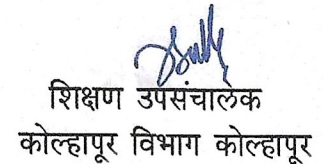 शिक्षण उपसंचालक
कोल्हापूर विभाग कोल्हापूर